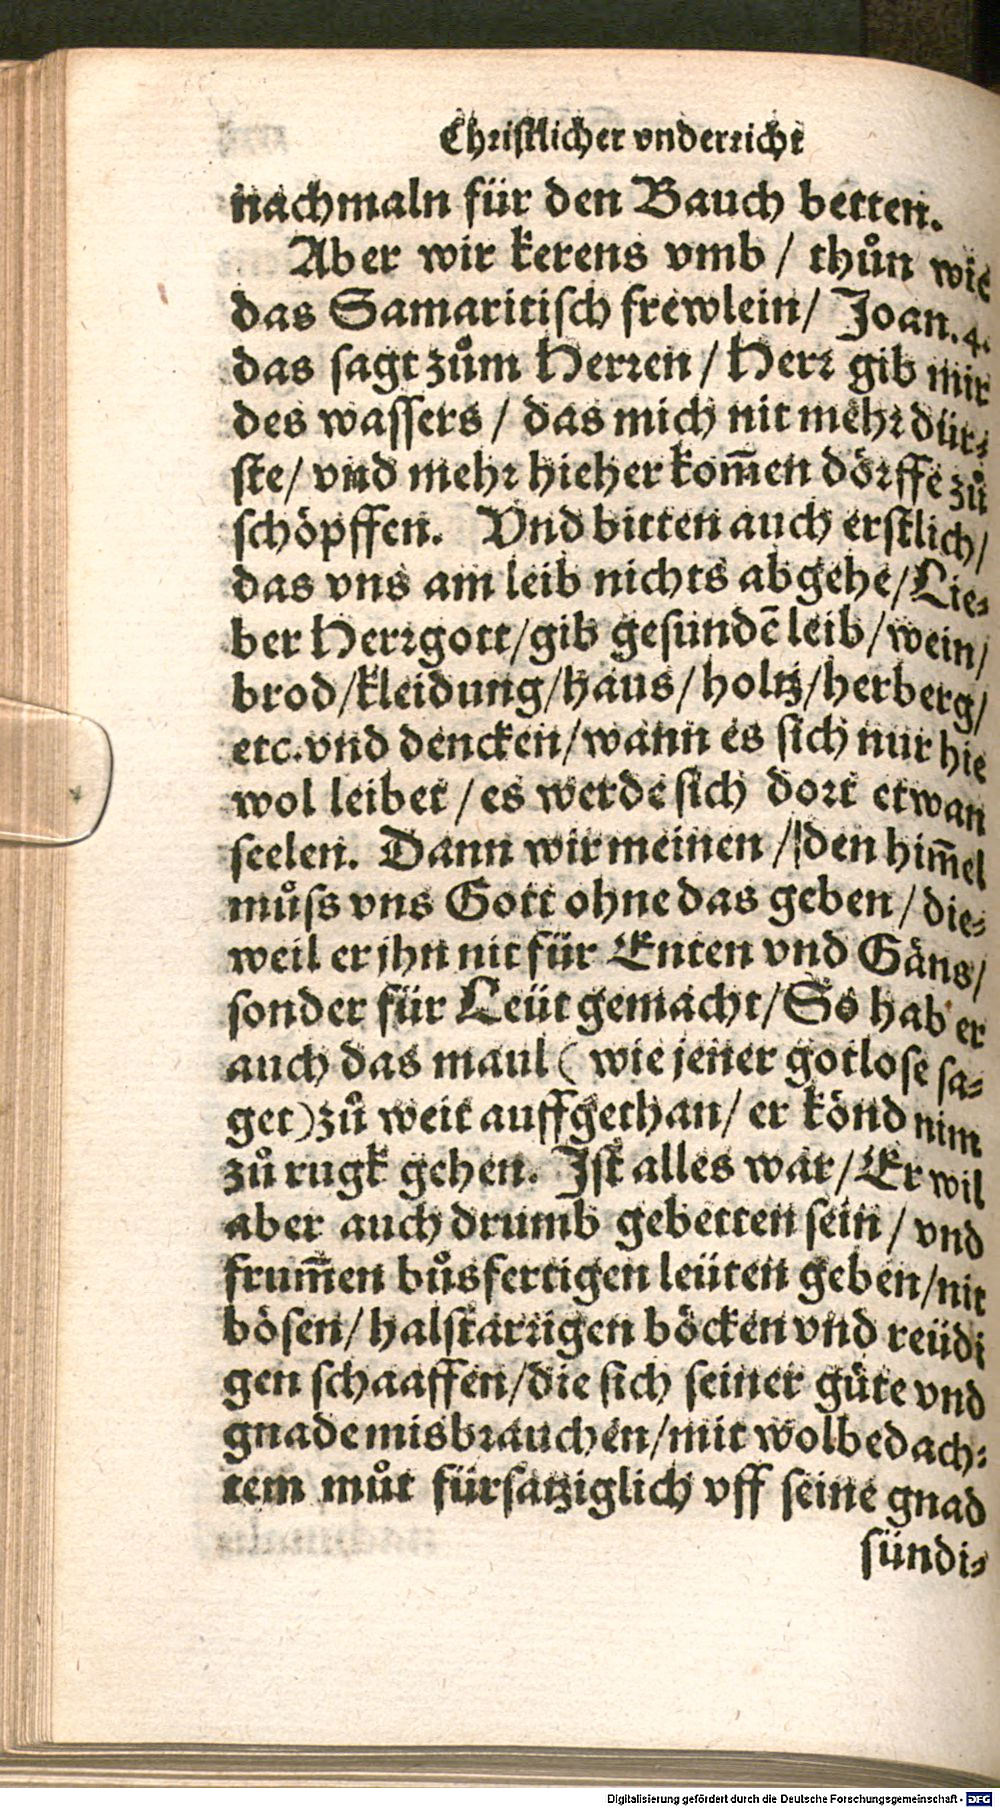 Christlicher vnderricht
nachmaln für den Bauch betten.
Aber wir kerens vmb / thůn wie
das Samaritisch frewlein / Joan. 4.
das sagt zům Herren / Herr gib mir
des wassers / das mich nit mehr dür-
ste / vnd mehr hieher kom̄en dörffe zů
schöpffen. Vnd bitten auch erstlich /
das vns am leib nichts abgehe / Lie-
ber Herrgott / gib gesundē leib / wein /
brod / kleidung / haus / holtz / herberg /
etc. vnd dencken / wann es sich nur hie
wol leibet / es werde sich dort etwan
seelen. Dann wir meinen / den him̄el
můss vns Gott ohne das geben / die-
weil er jhn nit für Enten vnd Gäns /
sonder für Leüt gemacht / So hab er
auch das maul ( wie jener gotlose sa-
get ) zů weit auffgethan / er könd nim
zů rugk gehen. Ist alles war / Er wil
aber auch drumb gebetten sein / vnd
frum̄en bůsfertigen leüten geben / nit
bösen / halstarrigen böcken vnd reüdi
gen schaaffen / die sich seiner güte vnd
gnade misbrauchen / mit wolbedach-
tem můt fürsatziglich vff seine gnad
sündi-
Digitalisierung gefördert durch die Deutsche Forschungsgemeinschaft - DFG